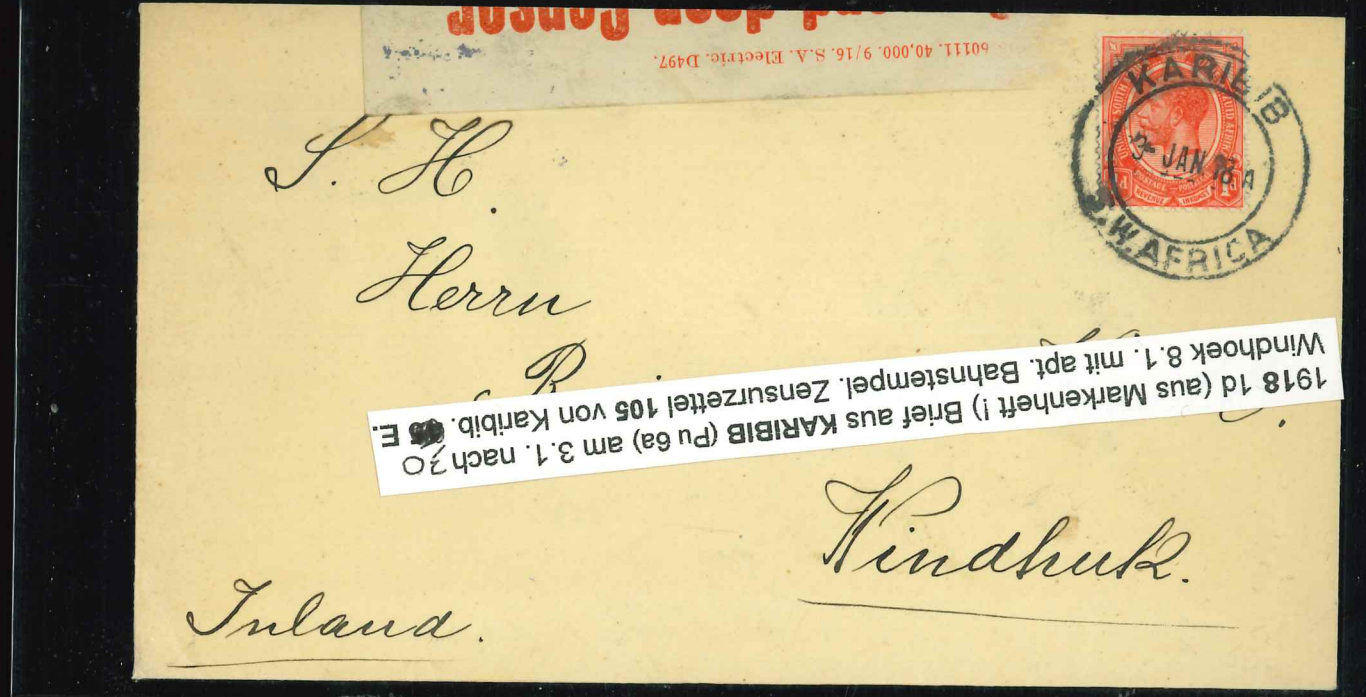 door Censor
60111. 40,000. 9/16. S.A. Electric. D497.
KARIBIB
3 JAN 18
S.W. AFRICA
POSTAGE POSTZEGEL
REVENUE INKOMST
S. H.
Herrn
1918 1d (aus Markenheft !) Brief aus KARIBIB (Pu 6a) am 3.1. nach
Windhoek 8.1. mit apt. Bahnstempel. Zensurzettel 105 von Karibib. E.
70
Windhuk.
Inland.